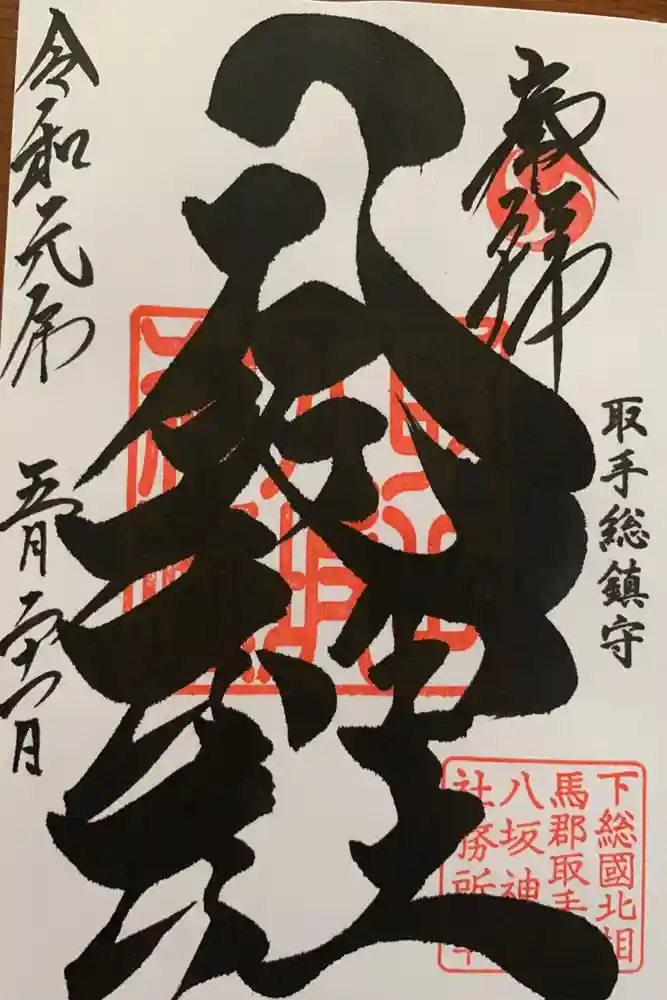 取手総鎮守
八坂神社
令和元年
五月
下総國北相
馬郡取手
八坂神
社務所